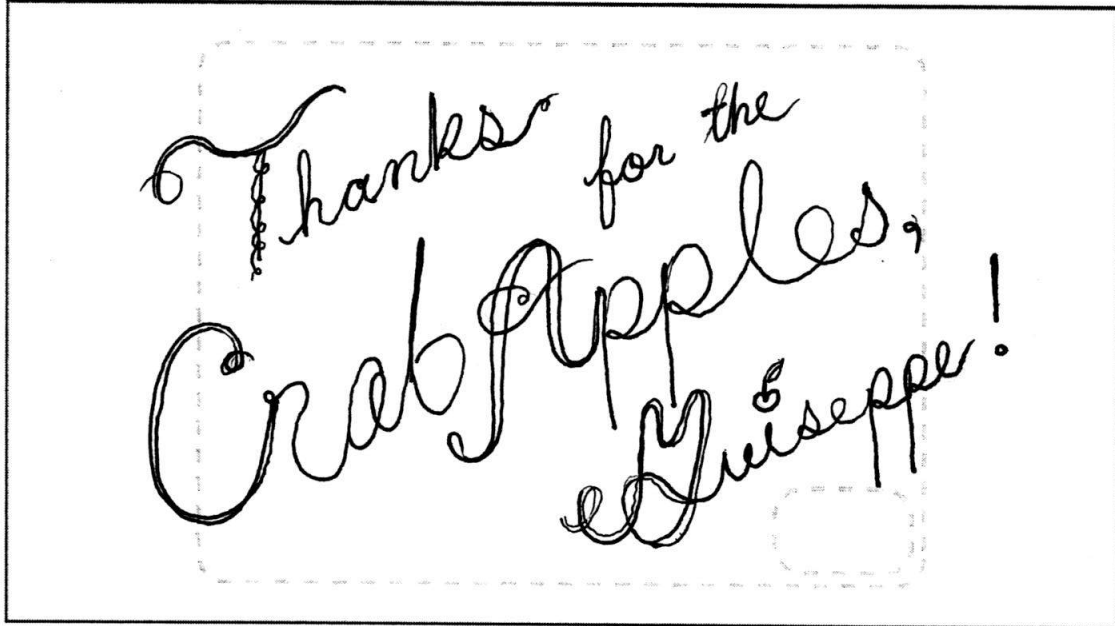 Thanks for the
Crab Apples,
Guiseppe!